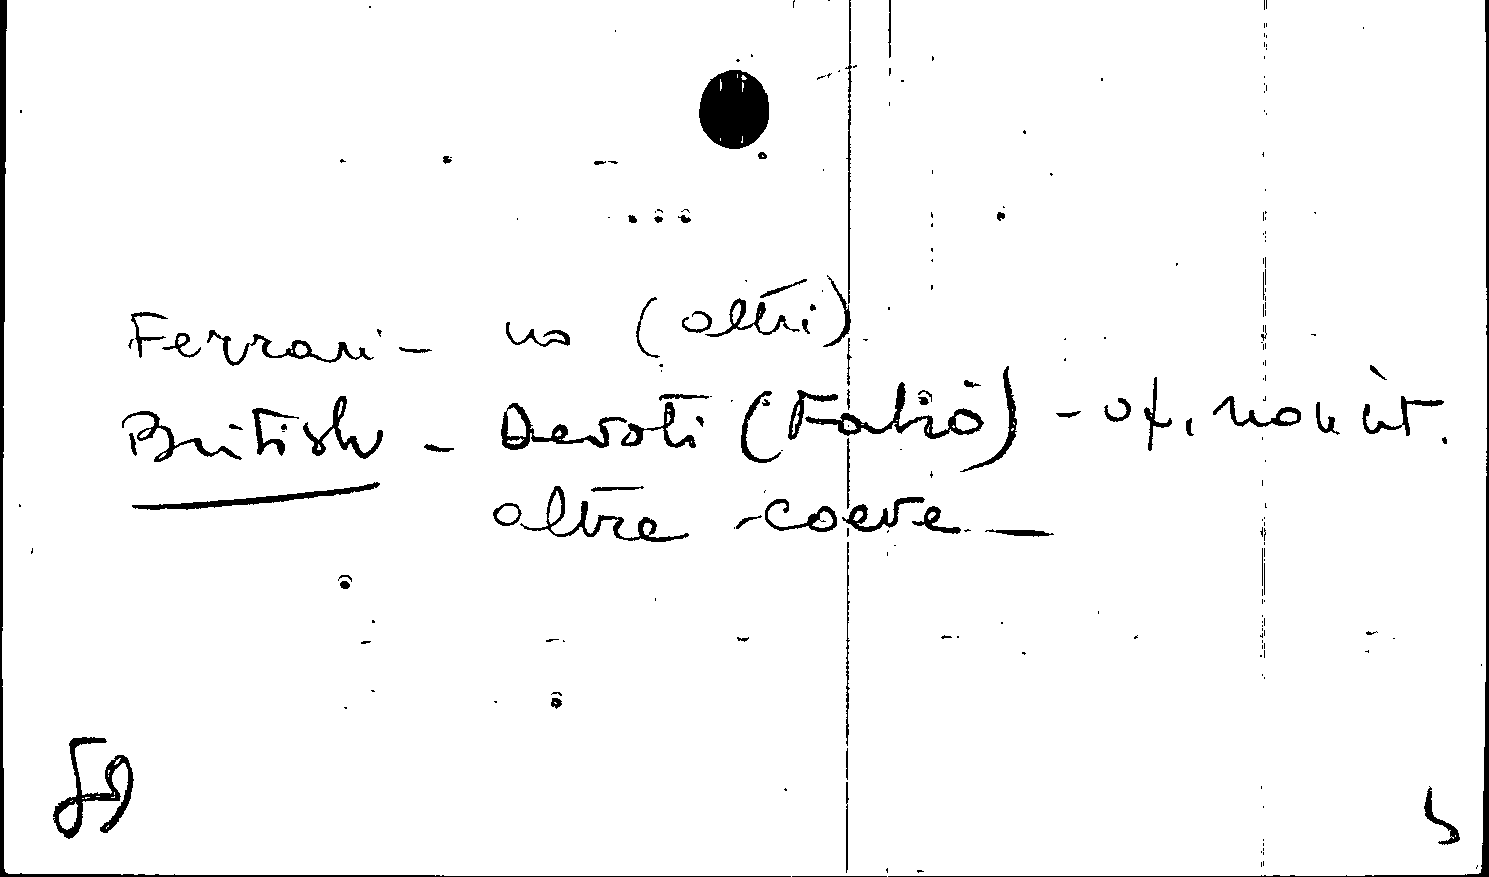 Ferrari - no (altri)
British - Devoti (Fabio) - of. non int.
altre coeve -
59